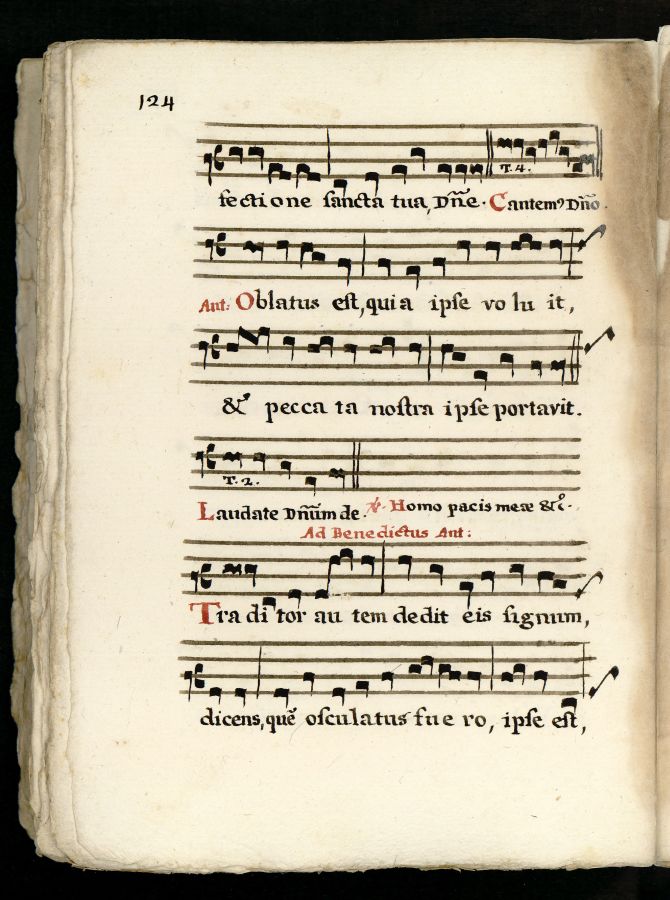 124
T. 4.
fectione sancta tua, Dñe. Cantemꝰ Dño.
Ant: Oblatus est, quia ipse vo lu it,
&ʼ pecca ta nostra ipse portavit.
T. 2.
Laudate Dñum de. ℣. Homo pacis meæ &c.
Ad Benedictus Ant:
Tra di tor au tem dedit eis signum,
dicens, quẽ osculatus fue ro, ipse est,